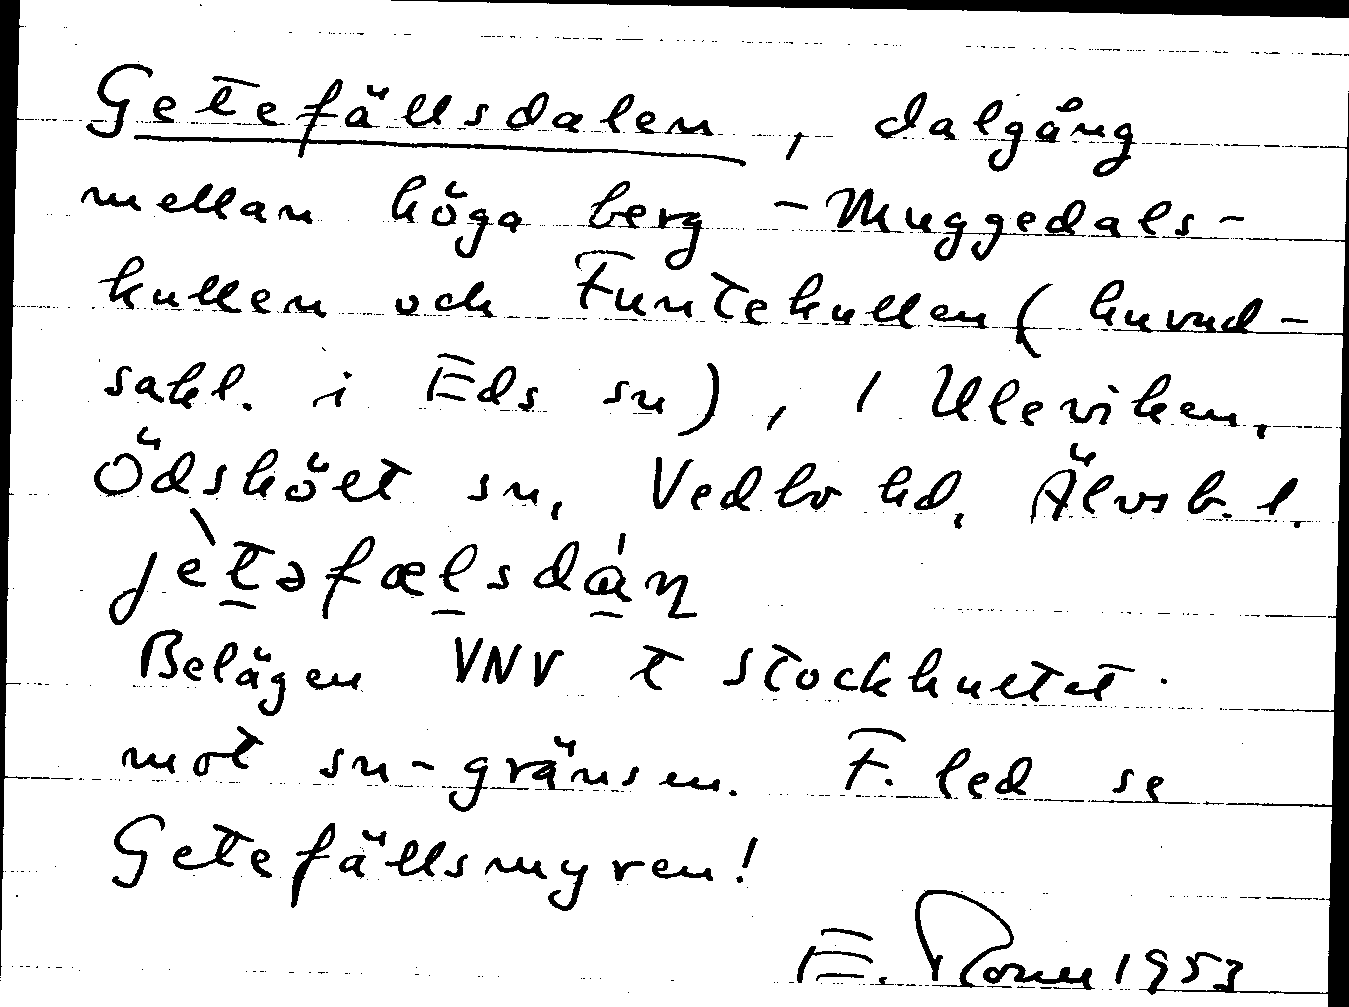 Getefällsdalen, dalgång
mellan höga berg - Muggedals-
kullen och Funtekullen (huvud-
sakl. i Eds sn), 1 Uleviken,
Ödsköلt sn, Vedbo hd, Älvsb. l.
jètəfælsdán
Belägen VNV t Stockhultet
mot sn-gränsen. F. led se
Getefällsmyren!
E. 1953